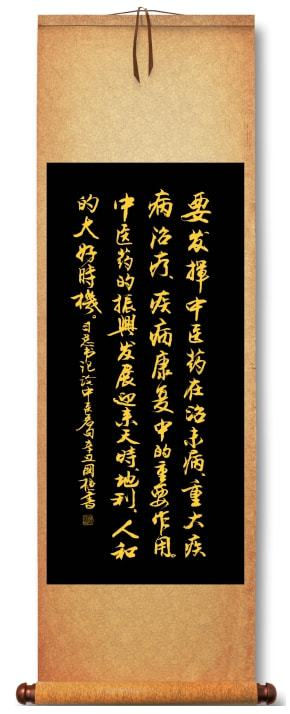 要发揮中医药在治未病、重大疾
病治疗、疾病康复中的重要作用。
中医药的振興发展迎来天時、地利、人和
的大好時機。习总书记论中医名句辛丑國書